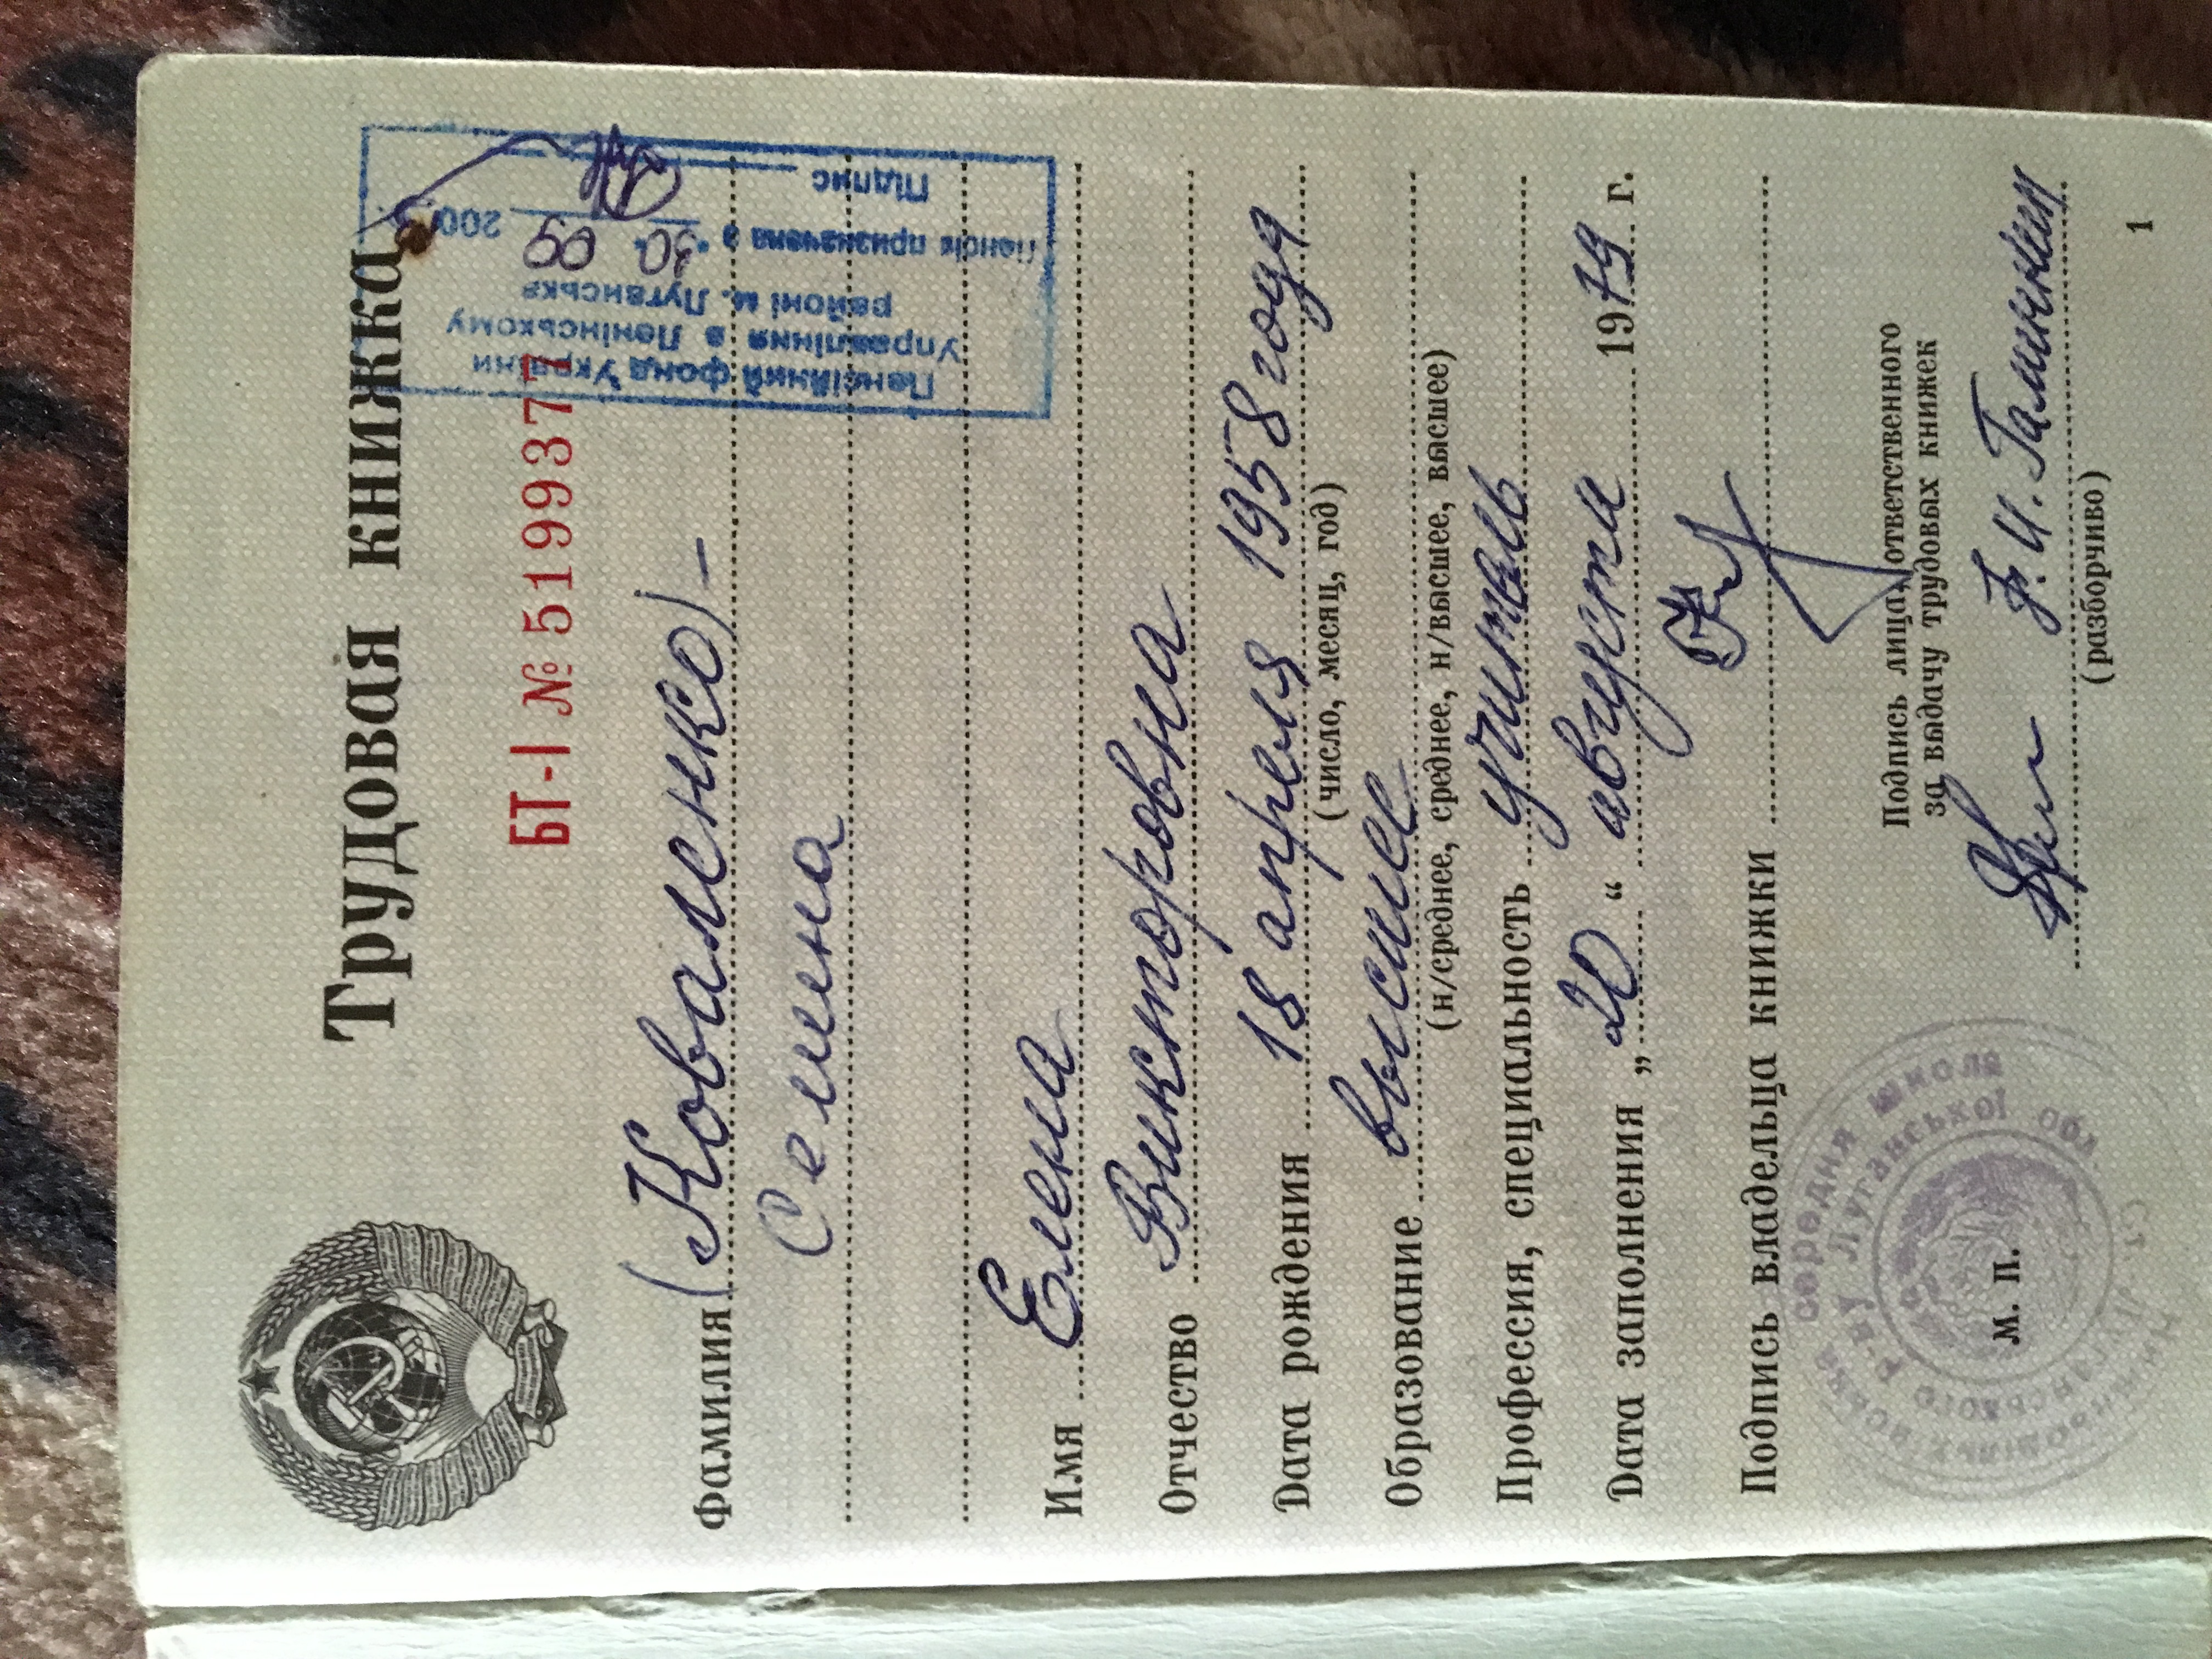 Трудовая книжка
БТ-I № 5199377
Пенсійний фонд України
Управління в Ленінському
районі м. Луганська
Пенсія призначена з "30" 09 200
Підпис
Фамилия (Коваленко) –
Семина
Имя Елена
Отчество Викторовна
Дата рождения 18 апреля 1958 года
(число, месяц, год)
Образование высшее
(н/среднее, среднее, н/высшее, высшее)
Профессия, специальность учитель
Дата заполнения „20“ августа 1979 г.
Подпись владельца книжки
Подпись лица, ответственного
за выдачу трудовых книжек
Ф.И.
(разборчиво)
М. П.
середня школа
р-ну Луганської обл.
1